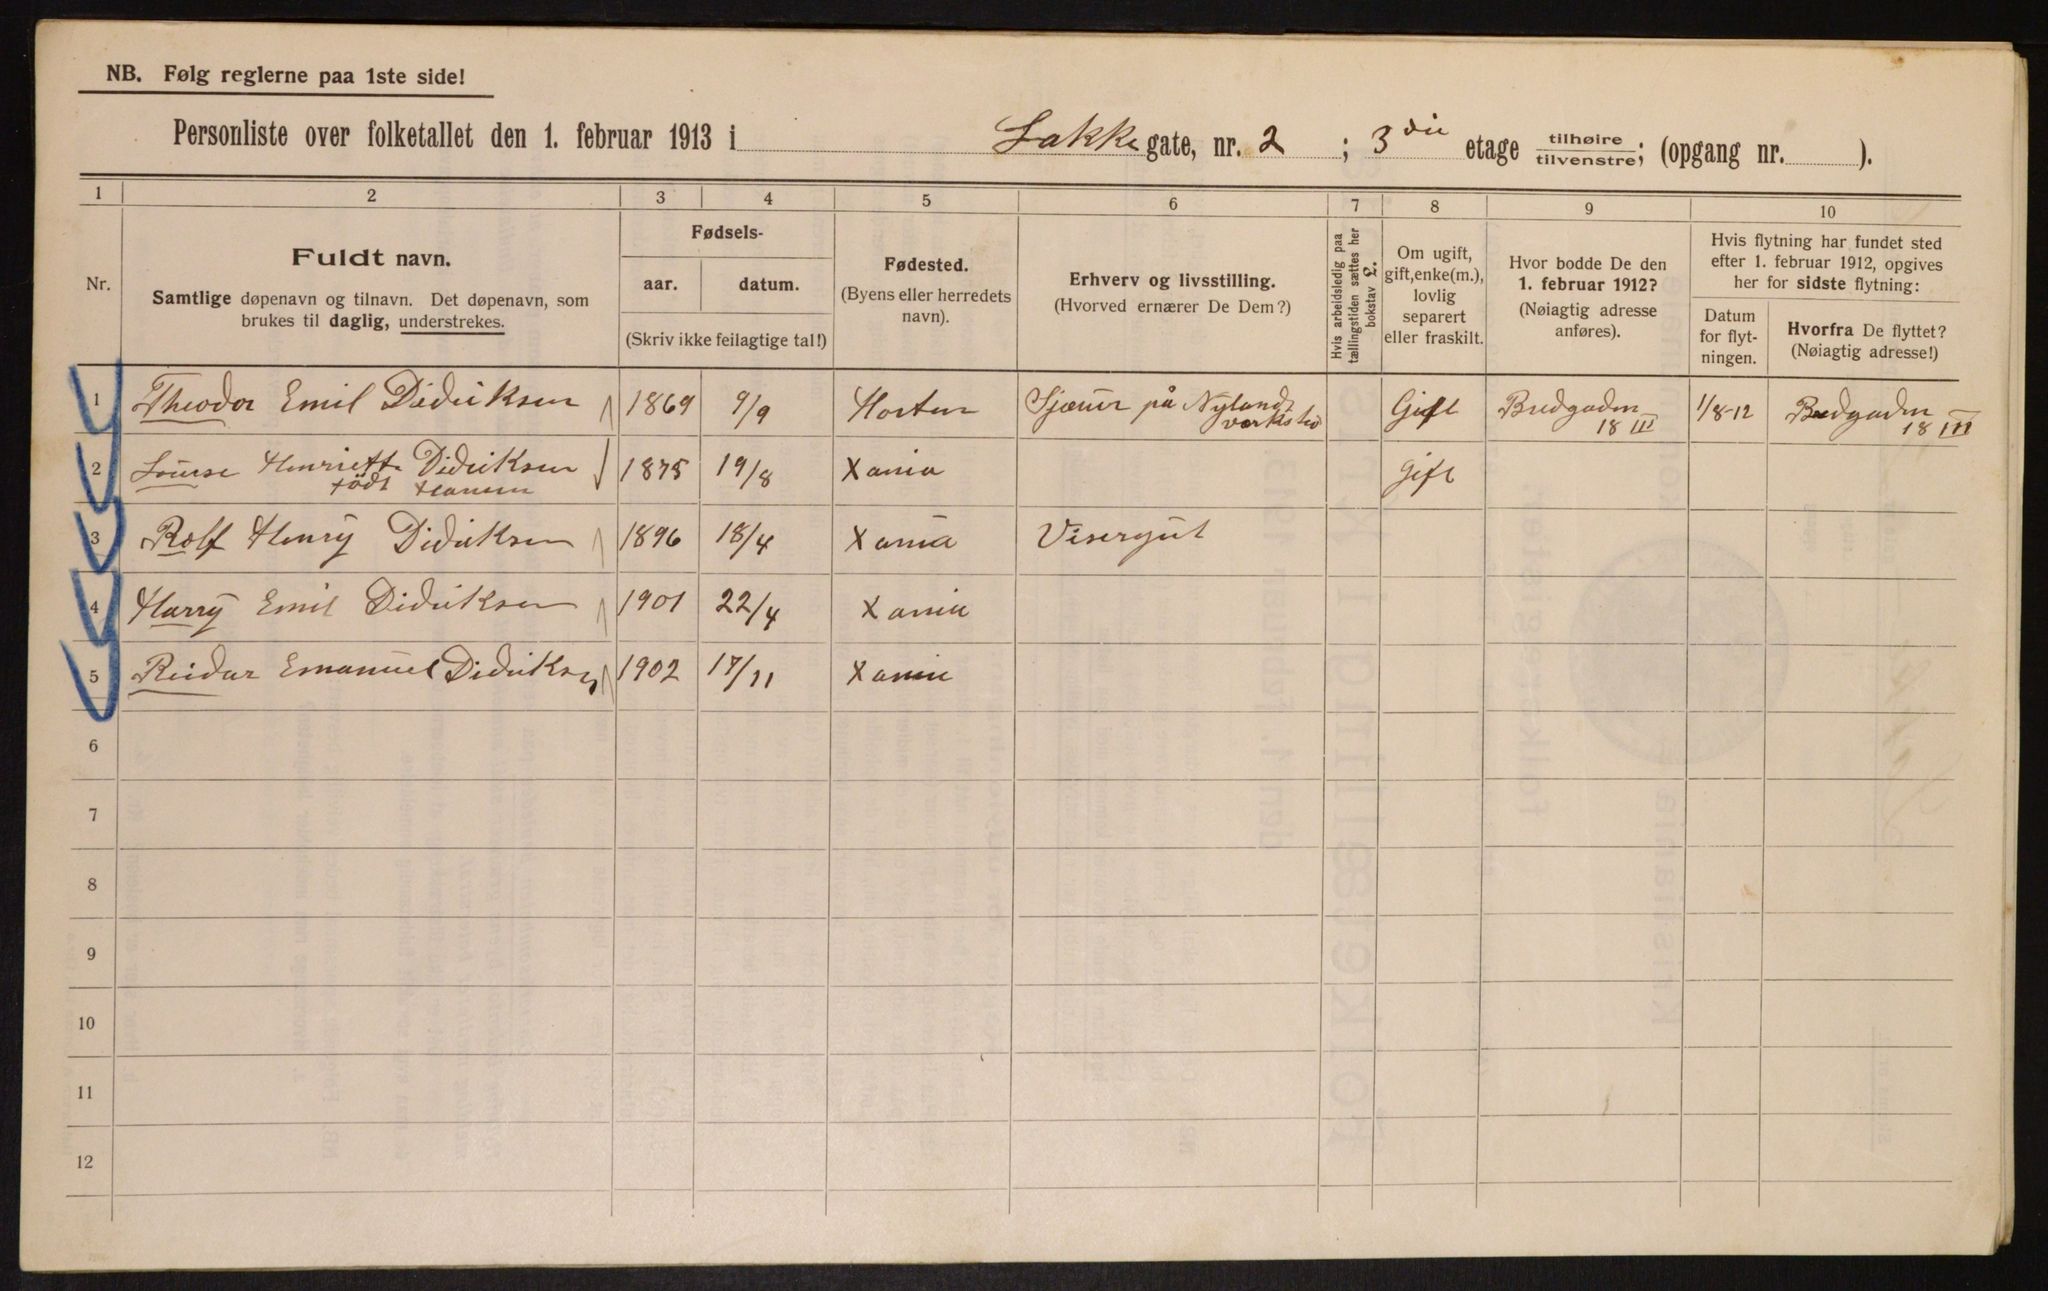 NB. Følg reglerne paa 1ste side!
Personliste over folketallet den 1. februar 1913 i Lakke gate, nr. 2 ; 3 die etage tilhøire/tilvenstre; (opgang nr. ).
1 2 3 4 5 6 7 8 9 10
Nr.
Fuldt navn.
Samtlige døpenavn og tilnavn. Det døpenavn, som
brukes til daglig, understrekes.
Fødsels-
aar. datum.
(Skriv ikke feilagtige tal!)
Fødested.
(Byens eller herredets
navn).
Erhverv og livsstilling.
(Hvorved ernærer De Dem?)
Hvis arbeidsledig paa
tællingstiden sættes her
bokstav L.
Om ugift,
gift, enke(m.),
lovlig
separert
eller fraskilt.
Hvor bodde De den
1. februar 1912?
(Nøiagtig adresse
anføres).
Hvis flytning har fundet sted
efter 1. februar 1912, opgives
her for sidste flytning:
Datum
for flyt-
ningen.
Hvorfra De flyttet?
(Nøiagtig adresse!)
1 Theodor Emil Didriksen 1869 9/9 Horten Sjauer på Nylands Gift Bredgaden 1/8-12 Bredgaden
værksted 18 III 18 III
2 Louise Henriette Didriksen 1875 19/8 Xania Gift
född Hansen
3 Rolf Henry Didriksen 1896 18/4 Xania Visergut
4 Harry Emil Didriksen 1901 22/4 Xania
5 Reidar Emanuel Didriksen 1902 17/11 Xania
6
7
8
9
10
11
12